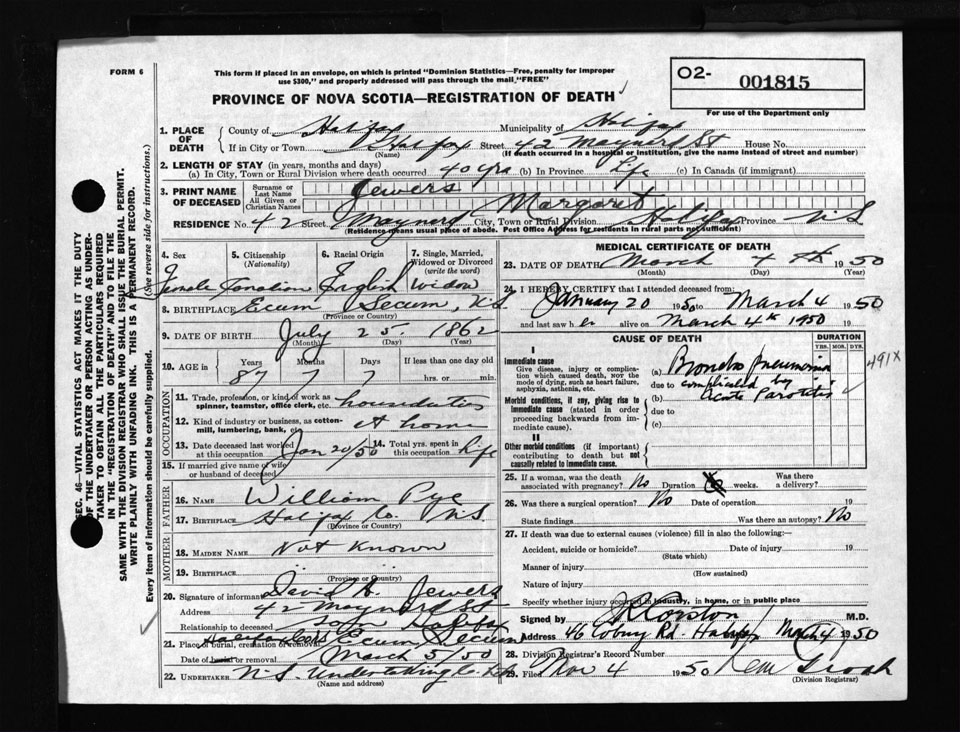 FORM 6
This form if placed in an envelope, on which is printed "Dominion Statistics—Free, penalty for improper
use $300," and properly addressed will pass through the mail "FREE"
O2- 001815
For use of the Department only
PROVINCE OF NOVA SCOTIA—REGISTRATION OF DEATH
SEC. 46—VITAL STATISTICS ACT MAKES IT THE DUTY
OF THE UNDERTAKER OR PERSON ACTING AS UNDER-
TAKER TO OBTAIN ALL THE PARTICULARS REQUIRED
IN THE "REGISTRATION OF DEATH" AND TO FILE THE
SAME WITH THE DIVISION REGISTRAR WHO SHALL ISSUE THE BURIAL PERMIT.
WRITE PLAINLY WITH UNFADING INK. THIS IS A PERMANENT RECORD.
Every item of information should be carefully supplied. (See reverse side for instructions.)
1. PLACE OF DEATH
County of Halifax Municipality of Halifax
If in City or Town Halifax Street 42 St House No.
(Name) (If death occurred in a hospital or institution, give the name instead of street and number)
2. LENGTH OF STAY (in years, months and days)
(a) In City, Town or Rural Division where death occurred 40 yrs (b) In Province Life (c) In Canada (if immigrant)
3. PRINT NAME OF DECEASED
Surname or Last Name Jewers
All Given or Christian Names Margaret
RESIDENCE No. 42 Street Maynard City, Town or Rural Division Halifax Province N.S
(Residence means usual place of abode. Post Office Address for residents in rural parts not sufficient)
4. Sex 5. Citizenship (Nationality) 6. Racial Origin 7. Single, Married, Widowed or Divorced (write the word)
Female Canadian English Widow
8. BIRTHPLACE Ecum Secum, N.S
(Province or Country)
9. DATE OF BIRTH July 25. 1862
(Month) (Day) (Year)
10. AGE in Years Months Days If less than one day old
87 7 7 hrs. or min.
OCCUPATION
11. Trade, profession, or kind of work as spinner, teamster, office clerk, etc. houseduties
12. Kind of industry or business, as cotten-mill, lumbering, bank, etc. At home
13. Date deceased last worked at this occupation Jan 20/50 14. Total yrs. spent in this occupation Life
15. If married give name of wife or husband of deceased
FATHER
16. NAME William Pye
17. BIRTHPLACE Halifax Co. N.S
(Province or Country)
MOTHER
18. MAIDEN NAME Not Known
19. BIRTHPLACE
(Province or Country)
20. Signature of informant David H. Jewers
Address 42 Maynard St
Relationship to deceased Son Halifax
21. Place of burial, cremation or removal Ecum Secum
Date of burial or removal March 5/50
22. UNDERTAKER N.S. Undertaking Co
(Name and address)
MEDICAL CERTIFICATE OF DEATH
23. DATE OF DEATH March 4th 1950
(Month) (Day) (Year)
24. I HEREBY CERTIFY that I attended deceased from:
January 20 1950 to March 4 1950
and last saw her alive on March 4th 1950
CAUSE OF DEATH DURATION
YRS. MOS. DYS.
I
Immediate cause
Give disease, injury or complication which caused death, NOT the mode of dying, such as heart failure, asphyxia, asthenia, etc.
(a) Broncho pneumonia
491X
due to complicated by
(b) Acute Parotitis
due to
(c)
Morbid conditions, if any, giving rise to immediate cause (stated in order proceeding backwards from immediate cause).
II
Other morbid conditions (if important) contributing to death but not causally related to immediate cause.
25. If a woman, was the death associated with pregnancy? No Duration weeks. Was there a delivery?
26. Was there a surgical operation? No Date of operation 19
State findings Was there an autopsy? No
27. If death was due to external causes (violence) fill in also the following:—
Accident, suicide or homicide? Date of injury 19
(State which)
Manner of injury
(How sustained)
Nature of injury
Specify whether injury occurred in industry, in home, or in public place
Signed by M.D.
Address 46 Coburg Rd. Halifax March 4 1950
28. Division Registrar's Record Number
29. Filed 4 1950
(Division Registrar)